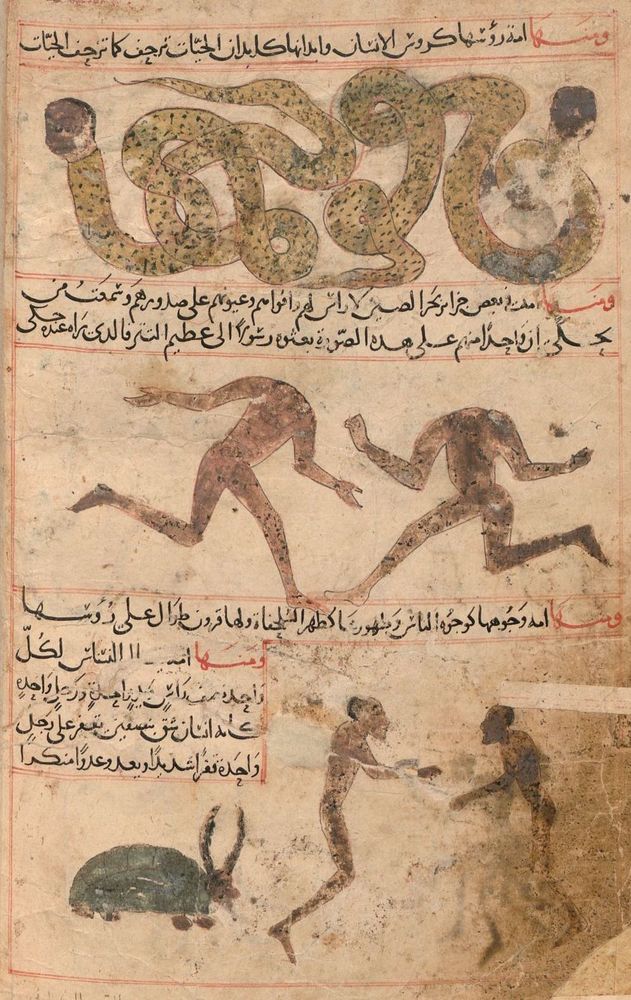 ومنها امة رؤسها كروس الانسان وابدانها كابدان الحيات ترجف كما ترجف الحيات
ومنها امة في بعض جزاير بحر الصين لا راس لهم وافواههم وعيونهم على صدورهم وسمعت من
ان واحدا منهم على هذه الصورة بعثوه رسولا الى عظيم التتر فالذى راه عنده حكى
ومنها امه وجوهها كوجوه الناس وظهورها كظهر السلحفاة ولها قرون طوال على رؤسها
ومنها النسناس لكل
واحدة نصف راس ويد واحدة ورجل واحده
كانه انسان شق نصفين يقفز على رجل
واحدة قفزا شديدا ويعدو عدوا منكرا